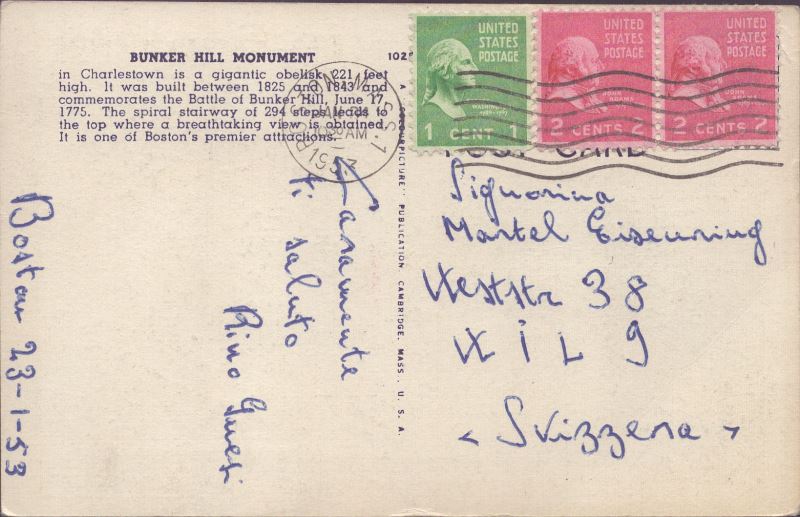 BUNKER HILL MONUMENT
in Charlestown is a gigantic obelisk 221 feet
high. It was built between 1825 and 1843 and
commemorates the Battle of Bunker Hill, June 17
1775. The spiral stairway of 294 steps leads to
the top where a breathtaking view is obtained.
It is one of Boston's premier attractions.
Boston 23-1-53
Caramente
ti saluto
Rino
A "COLOURPICTURE" PUBLICATION CAMBRIDGE, MASS., U. S. A.
BOSTON MASS
1953
UNITED
STATES
POSTAGE
WASHINGTON
1 CENT 1
UNITED
STATES
POSTAGE
JOHN
ADAMS
2 CENTS 2
UNITED
STATES
POSTAGE
JOHN
ADAMS
2 CENTS 2
POST CARD
Signorina
Martel Eisenring
Weststr 38
WIL 9
< Svizzera >